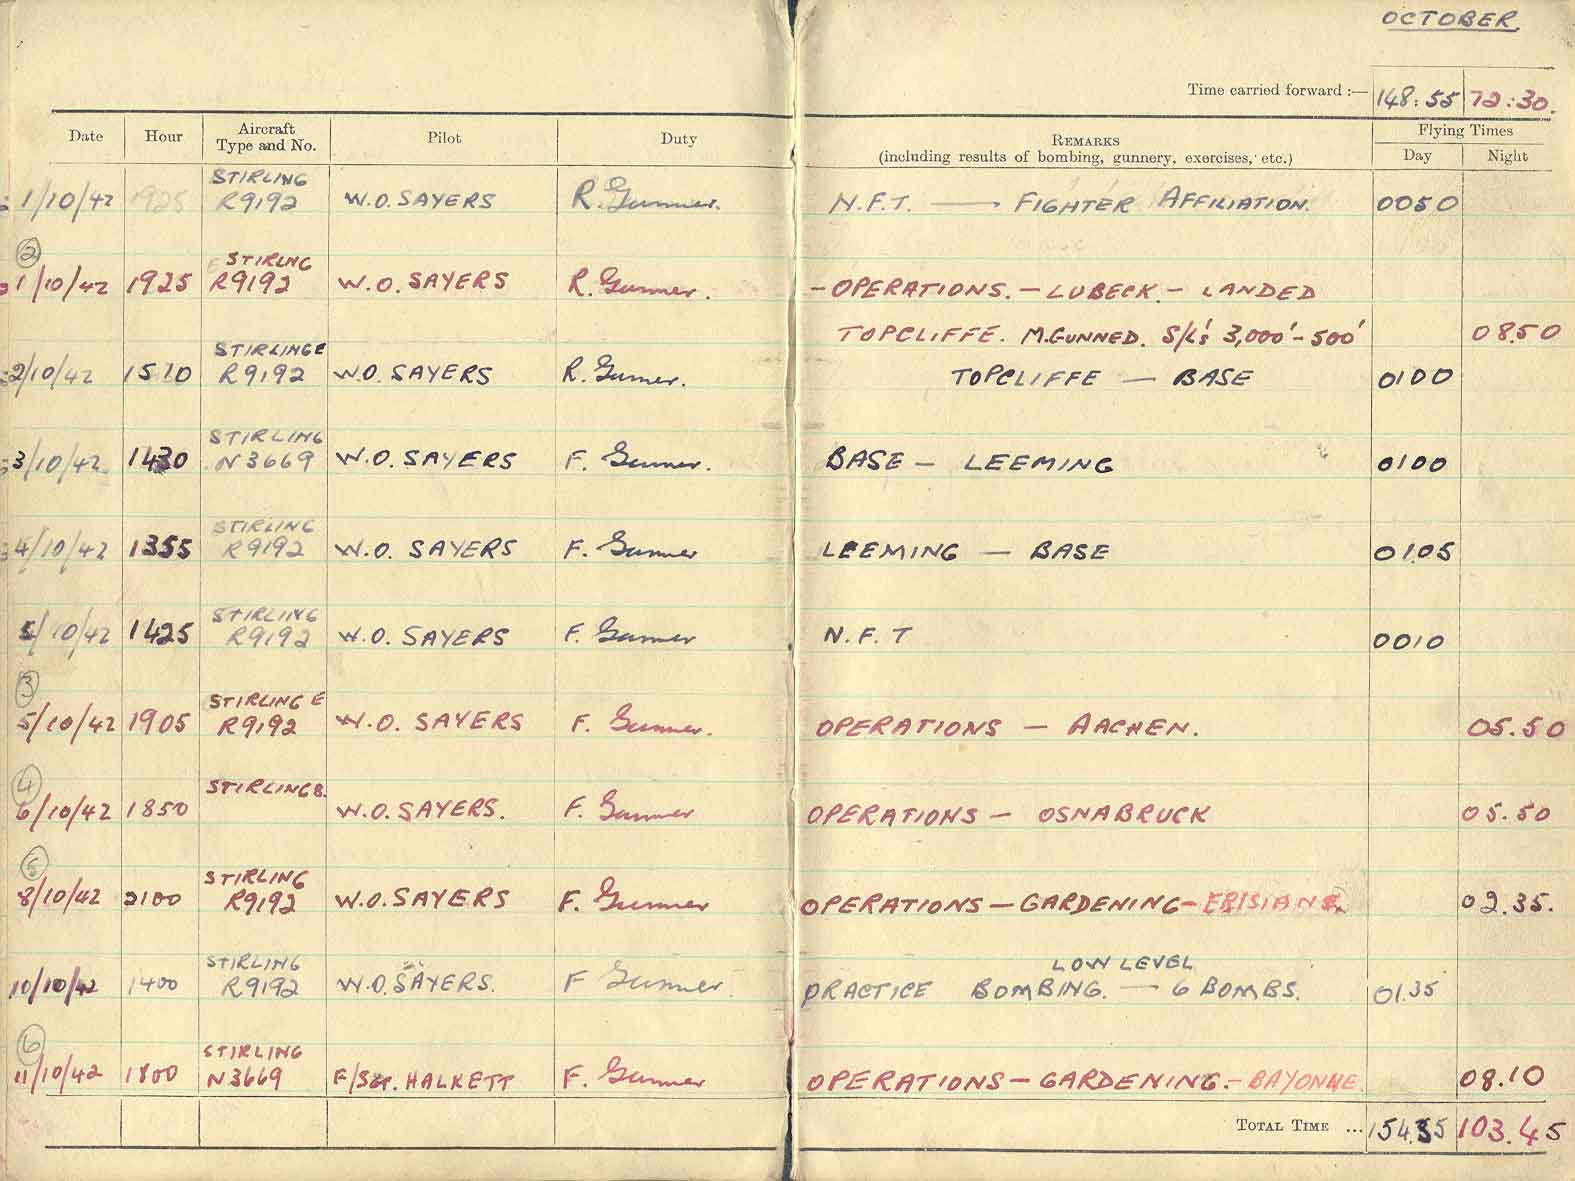 OCTOBER.
Time carried forward :— 148:55 72:30.
Date Hour Aircraft Type and No. Pilot Duty REMARKS (including results of bombing, gunnery, exercises, etc.) Flying Times Day Night
STIRLING
1/10/42 1925 R9192 W.O. SAYERS R. Gunner. N.F.T. — FIGHTER AFFILIATION. 0050
2
STIRLNG
1/10/42 1925 R9192 W.O. SAYERS R. Gunner. - OPERATIONS. - LUBECK - LANDED
TOPCLIFFE. M.GUNNED. S/L's 3,000' - 500' 08.50
STIRLING E
2/10/42 1510 R9192 W.O. SAYERS R. Gunner. TOPCLIFFE — BASE 0100
STIRLING
3/10/42 1430 N3669 W.O. SAYERS F. Gunner. BASE — LEEMING 0100
STIRLING
4/10/42 1355 R9192 W.O. SAYERS F. Gunner LEEMING — BASE 01.05
STIRLING
5/10/42 1425 R9192 W.O. SAYERS F. Gunner N.F.T 0010
3
STIRLING E
5/10/42 1905 R9192 W.O. SAYERS F. Gunner. OPERATIONS — AACHEN. 05.50
4
STIRLING B.
6/10/42 1850 W.O. SAYERS. F. Gunner OPERATIONS — OSNABRUCK 05.50
5
STIRLING
8/10/42 2100 R9192 W.O. SAYERS F. Gunner OPERATIONS — GARDENING - 02.35.
STIRLING LOW LEVEL
10/10/42 1400 R9192 W.O. SAYERS. F Gunner. PRACTICE BOMBING. — 6 BOMBS. 01.35
6
STIRLING
11/10/42 1800 N3669 F/Sgt. HALKETT F. Gunner OPERATIONS — GARDENING. - BAYONNE. 08.10
TOTAL TIME ... 154.35 103.45